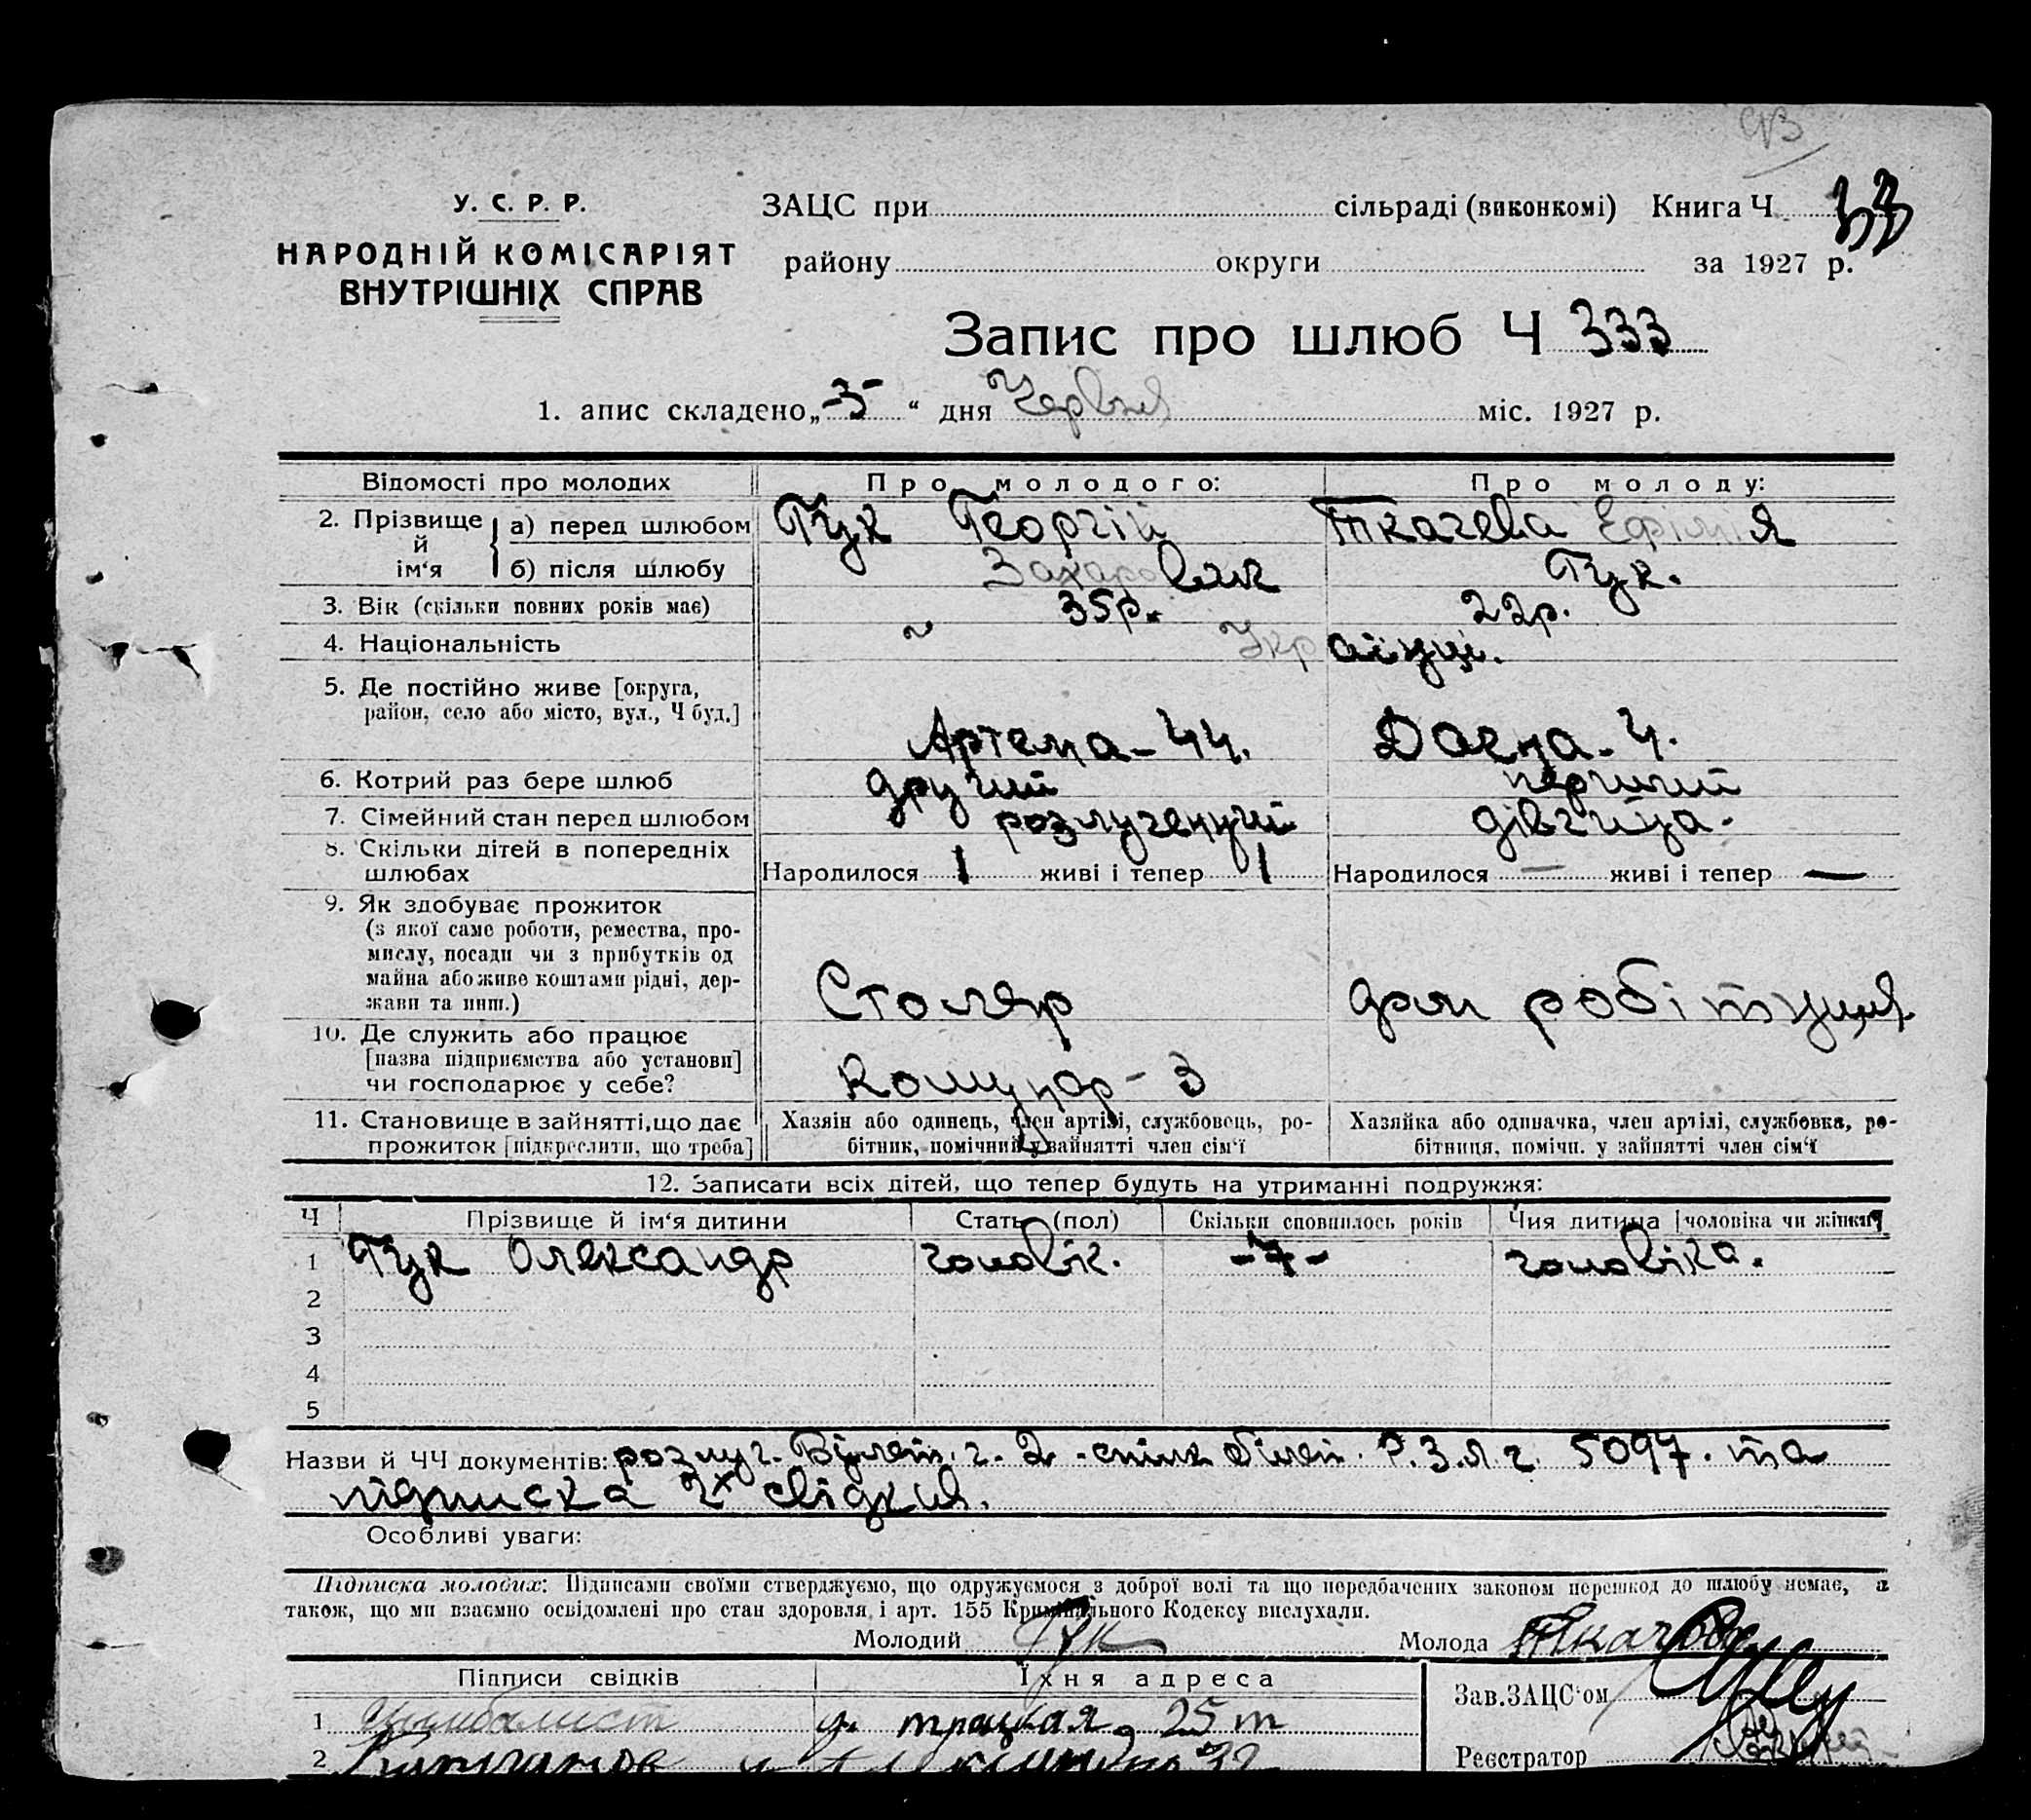 У. С. Р. Р.
НАРОДНІЙ КОМІСАРІЯТ
ВНУТРІШНІХ СПРАВ
ЗАЦС при сільраді (виконкомі) Книга Ч 33
району округи за 1927 р.
Запис про шлюб Ч 333
1. апис складено „-3-“ дня Червня міс. 1927 р.
Відомості про молодих Про молодого: Про молоду:
2. Прізвище й ім‘я а) перед шлюбом Гук Георгій Ткачева Ефімія
б) після шлюбу Захарович Гук.
3. Вік (скільки повних років має) 35р. 22р.
4. Національність Українці.
5. Де постійно живе [округа,
район, село або місто, вул., Ч буд.] Артема-44. 4.
6. Котрий раз бере шлюб другий перший
7. Сімейний стан перед шлюбом розлучений дівчина.
8. Скільки дітей в попередніх
шлюбах Народилося 1 живі і тепер 1 Народилося — живі і тепер —
9. Як здобуває прожиток
(з якої саме роботи, ремества, про-
мислу, посади чи з прибутків од
майна або живе коштами рідні, дер-
жави та инш.) Столяр дом робітниця
10. Де служить або працює
[назва підприємства або установи]
чи господарює у себе? Комунар-3
11. Становище в зайнятті, що дає
прожиток [підкреслити, що треба]
Хазяїн або одинець, член артілі, службовець, ро-
бітник, помічний у зайнятті член сім‘ї
Хазяйка або одиначка, член артілі, службовка, ро-
бітниця, помічн. у зайнятті член сім‘ї
12. Записати всіх дітей, що тепер будуть на утриманні подружжя:
Ч Прізвище й ім‘я дитини Стать (пол) Скільки сповнилось років Чия дитина [чоловіка чи жінки]
1 Гук Олександр чоловік. -7- чоловіка.
2
3
4
5
Назви й ЧЧ документів: розлуч. ч. 2 - спілк білет. Р.З.Л ч. 5097. та
підписка 2х свідків.
Особливі уваги:
Підписка молодих: Підписами своїми стверджуємо, що одружуємося з доброї волі та що передбачених законом перешкод до шлюбу немає, а
також, що ми взаємно освідомлені про стан здоровля і арт. 155 Кримінального Кодексу вислухали.
Молодий Гук Молода Ткачова
Підписи свідків Їхня адреса
Зав.ЗАЦС‘ом
1 25
2 32
Реєстратор